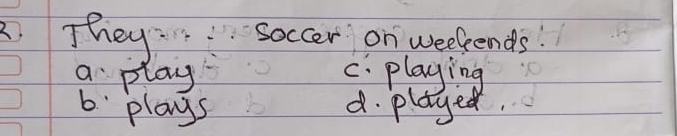 2. They . . . . Soccer on weekends.
a. play c. playing
b. plays d. played.